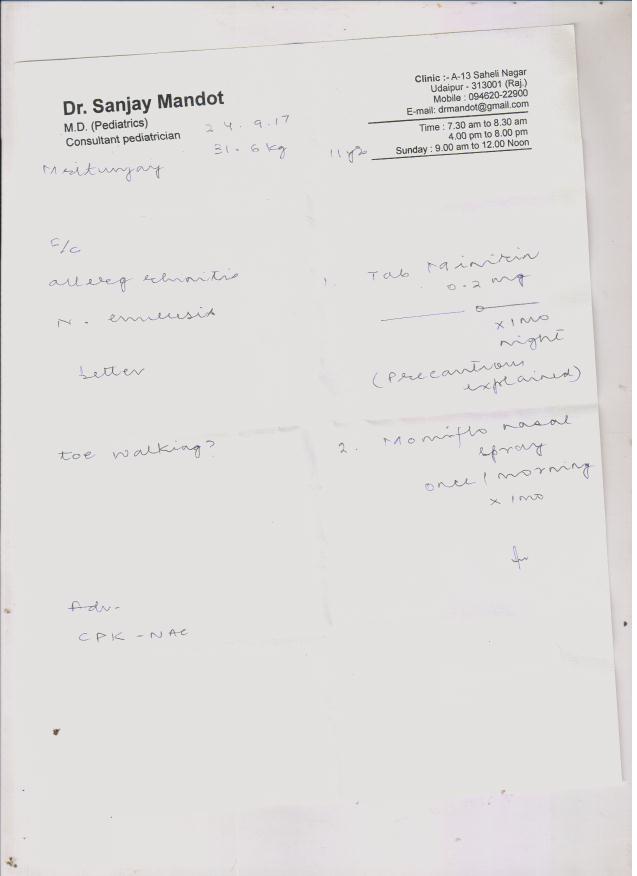 Dr. Sanjay Mandot
M.D. (Pediatrics)
Consultant pediatrician
Clinic :- A-13 Saheli Nagar
Udaipur - 313001 (Raj.)
Mobile : 094620-22900
E-mail: drmandot@gmail.com
Time : 7.30 am to 8.30 am
4.00 pm to 8.00 pm
Sunday : 9.00 am to 12.00 Noon
24.9.17
31.6 kg
Mritunjay
c/c
N. enuresis
better
toe walking?
Adv-
CPK - NAC
1. Tab Minirin
0.2 mg
x 1mo
night
(Precautions
explained)
2. Momiflo nasal
spray
once / morning
x 1mo